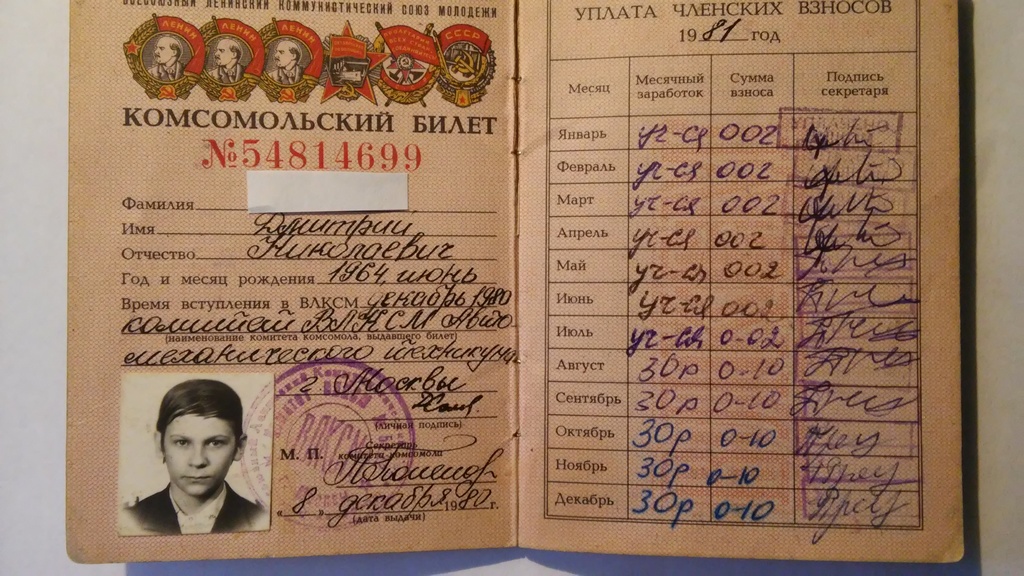 ВСЕСОЮЗНЫЙ ЛЕНИНСКИЙ КОММУНИСТИЧЕСКИЙ СОЮЗ МОЛОДЕЖИ
ЛЕНИН ЛЕНИН ЛЕНИН СССР
КОМСОМОЛЬСКИЙ БИЛЕТ
№54814699
Фамилия
Имя Дмитрий
Отчество Николаевич
Год и месяц рождения 1964, июнь
Время вступления в ВЛКСМ декабрь 1980
комитет ВЛКСМ Авто
(наименование комитета комсомола, выдавшего билет)
механического техникума
г. Москвы
(личная подпись)
М. П. Секретарь
комитета комсомола
"8" декабря 1980 г.
(дата выдачи)
ВЛКСМ
УПЛАТА ЧЛЕНСКИХ ВЗНОСОВ
1981 год
Месяц Месячный заработок Сумма взноса Подпись секретаря
Январь уч-ся 002
Февраль уч-ся 002
Март уч-ся 002
Апрель уч-ся 002
Май уч-ся 002
Июнь уч-ся 002
Июль уч-ся 0-02
Август 30р 0-10
Сентябрь 30р 0-10
Октябрь 30р 0-10
Ноябрь 30р 0-10
Декабрь 30р 0-10